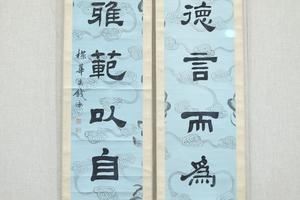 德言而為
雅範以自